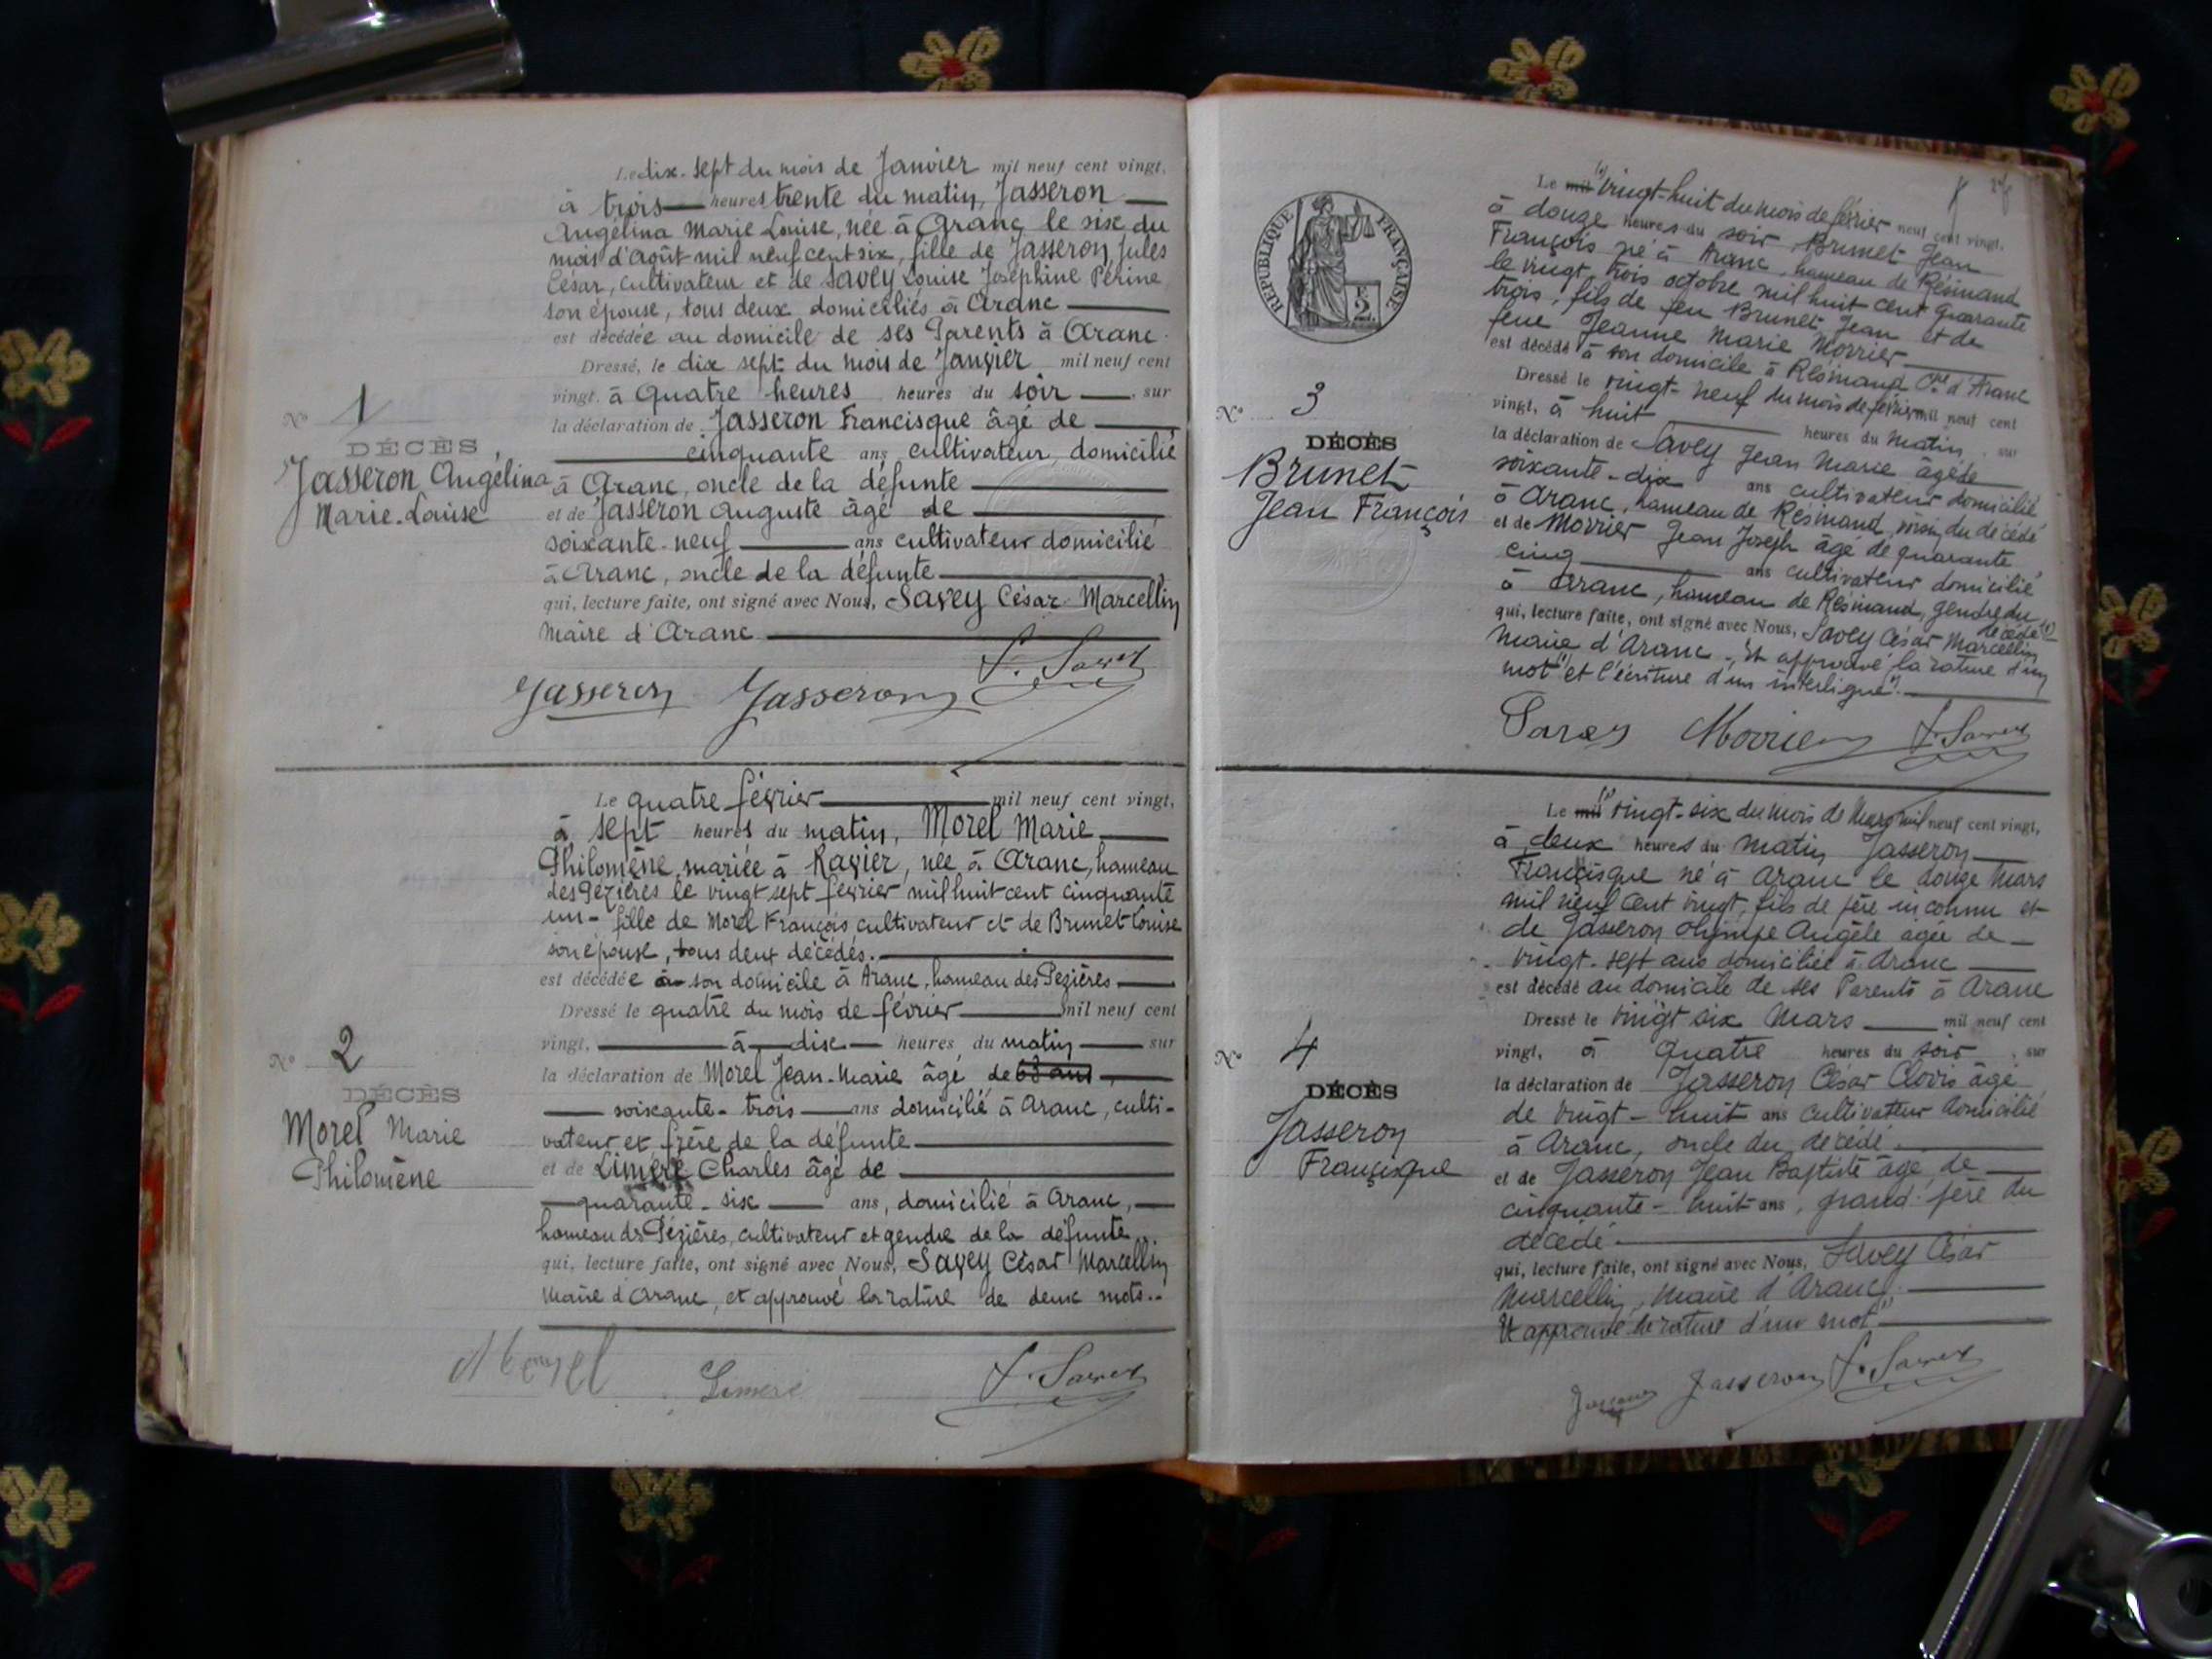 Le dix-sept du mois de Janvier mil neuf cent vingt,
à trois heures trente du matin, Jasseron
Angélina Marie Louise, née à Aranc le six du
mois d'Août mil neuf cent six, fille de Jasseron Jules
César, cultivateur et de Savey Louise Joséphine Périne
son épouse, tous deux domiciliés à Aranc
est décédée au domicile de ses Parents à Aranc.
Dressé, le dix sept du mois de Janvier mil neuf cent
vingt, à Quatre heures heures du soir, sur
la déclaration de Jasseron Francisque âgé de
cinquante ans, cultivateur domicilié
à Aranc, oncle de la défunte
et de Jasseron Auguste âgé de
soixante-neuf ans cultivateur domicilié
à Aranc, oncle de la défunte
qui, lecture faite, ont signé avec Nous, Savey César Marcellin
Maire d'Aranc
No 1
DÉCÈS
Jasseron Angélina
Marie-Louise
Jasseron Jasseron
Le quatre février mil neuf cent vingt,
à sept heures du matin, Morel Marie
Philomène, mariée à Ravier, née à Aranc, hameau
des Pézières le vingt sept février mil huit cent cinquante
un - fille de Morel François cultivateur et de Brunet Louise
son épouse, tous deux décédés.
est décédée à son domicile à Aranc, hameau des Pezières
Dressé le quatre du mois de février mil neuf cent
vingt, à dix heures du matin sur
la déclaration de Morel Jean-Marie âgé de 63 ans
soixante-trois ans domicilié à Aranc, culti-
vateur et frère de la défunte
et de Liméré Charles âgé de
quarante-six ans, domicilié à Aranc,
hameau des Pézières, cultivateur et gendre de la défunte.
qui, lecture faite, ont signé avec Nous, Savey César Marcellin
Maire d'Aranc, et approuvé la rature de deux mots.
No 2
DÉCÈS
Morel Marie
Philomène
Morel
RÉPUBLIQUE FRANÇAISE
F
2
Le mil (1) vingt-huit du mois de février neuf cent vingt,
à douze heures du soir Brunet Jean
François né à Aranc, hameau de Résinand
le vingt trois octobre mil huit cent quarante
trois, fils de feu Brunet Jean et de
feue Jeanne Marie Morrier
est décédé à son domicile à Résinand Cne d'Aranc
Dressé le vingt-neuf du mois de février mil neuf cent
vingt, à huit heures du matin, sur
la déclaration de Savey Jean Marie âgé de
soixante-dix ans cultivateur domicilié
à Aranc, hameau de Résinand, voisin du décédé
et de Morrier Jean Joseph âgé de quarante
cinq ans cultivateur domicilié
à Aranc, hameau de Résinand, gendre du
décédé (1)
qui, lecture faite, ont signé avec Nous, Savey César Marcellin
Maire d'Aranc. Et approuvé la rature d'un
mot (1) et l'écriture d'un interligne.
No 3
DÉCÈS
Brunet
Jean François
Morrier
Le mil (1) vingt-six du mois de Mars mil neuf cent vingt,
à deux heures du matin Jasseron
Françisque né à Aranc le douze Mars
mil neuf cent vingt, fils de père inconnu et
de Jasseron Olympe Angèle agée de
vingt-sept ans domiciliée à Aranc
est décédé au domicile de ses Parents à Aranc
Dressé le vingt six Mars mil neuf cent
vingt, à Quatre heures du soir, sur
la déclaration de Jasseron César Clovis âgé
de vingt-huit ans cultivateur domicilié
à Aranc, oncle du décédé.
et de Jasseron Jean Baptiste âgé de
cinquante-huit ans, grand-père du
décédé.
qui, lecture faite, ont signé avec Nous, Savey César
Marcellin, Maire d'Aranc
Et approuvé la rature d'un mot (1)
No 4
DÉCÈS
Jasseron
Françisque
Jasseron